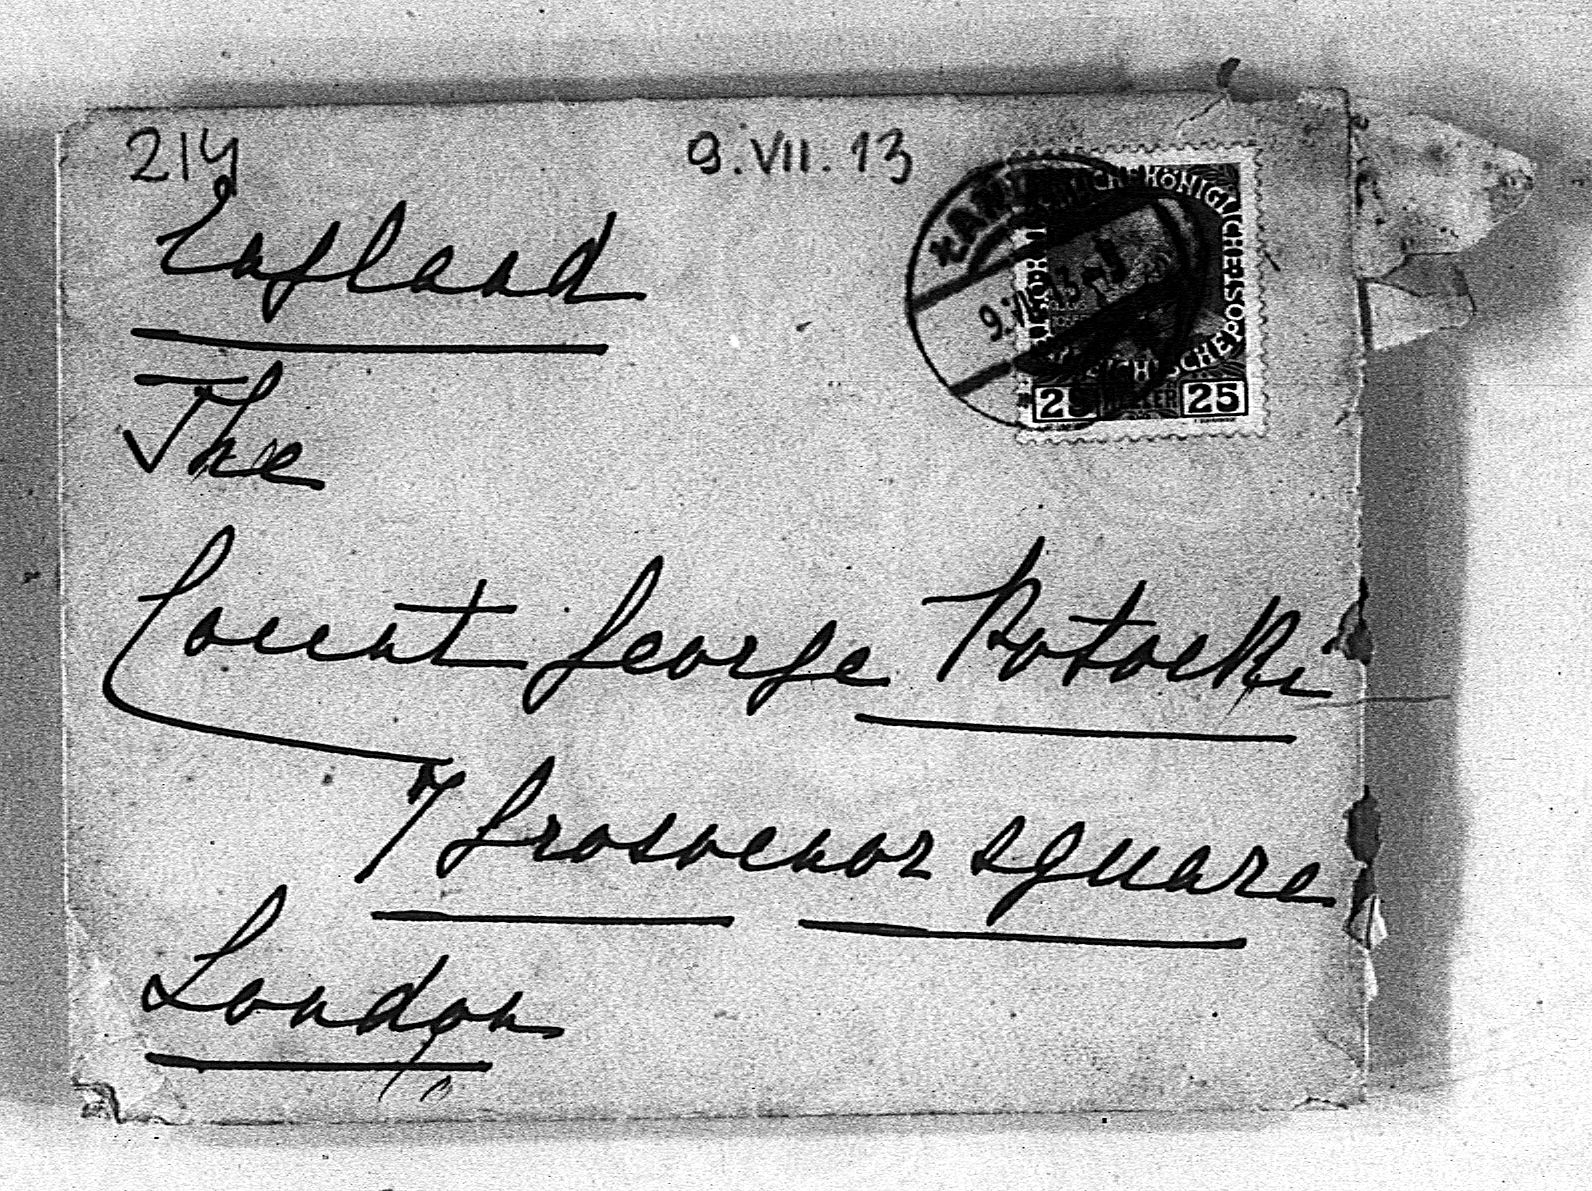 214 9.VII.13
England
The
Count George Potocki
7 Grosvenor square
London
9.VII.13
KÖNIGLICHE
25 25